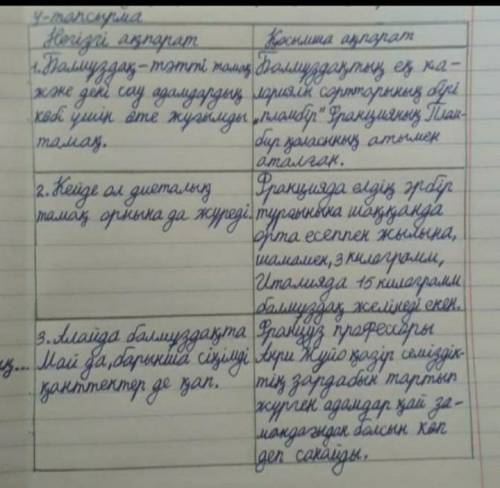 4-тапсырма
Негізгі ақпарат
Қосымша ақпарат
1. Балмұздақ – тәтті тамақ
және дені сау адамдардың
көбі үшін өте жұғымды
тамақ.
Балмұздақтың ең ка-
лориялы сорттарының бірі
„пламбір" Францияның Плам-
бир қаласының атымен
аталған.
2. Кейде ол диеталық
тамақ орнына да жүреді.
Францияда елдің әрбір
тұрғынына шаққанда
орта есеппен жылына,
шамамен, 3 килограмм,
Италияда 15 килограмм
балмұздақ желінеді екен.
3. Алайда балмұздақта
Май да, барынша сіңімді
қанттектер де қап.
Француз профессоры
Анри Жуйо қазір семіздік-
тің зардабын тартып
жүрген адамдар қай за-
мандағыдан болсын көп
деп санайды.
ің...